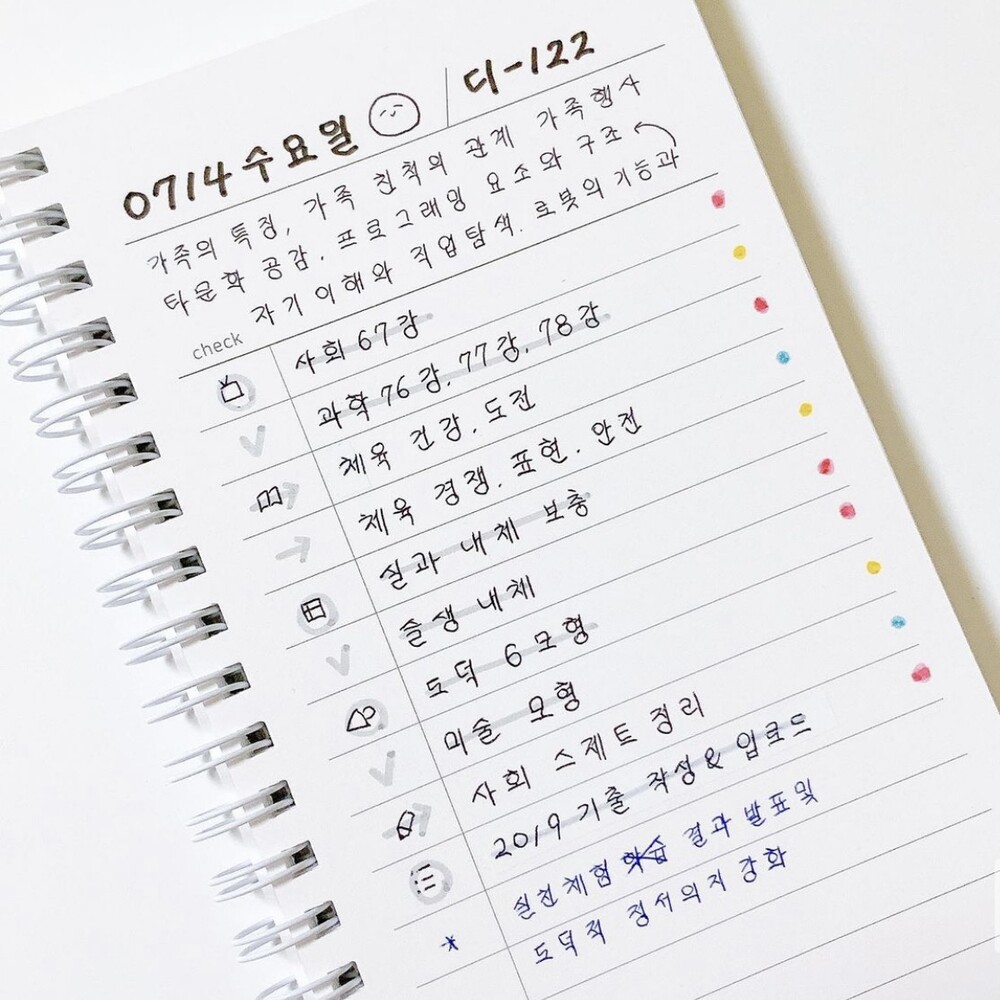 0714 수요일 / 디-122
가족의 특징, 가족 친척의 관계 가족행사
타문화 공감. 프로그래밍 요소와 구조
자기이해와 직업탐색. 로봇의 기능과
check
사회 67강
과학 76강. 77강. 78강
체육 건강. 도전
체육 경쟁. 표현. 안전
실과 내체 보충
슬생 내체
도덕 6모형
미술 모형
사회 스제트 정리
2019 기출 작성 & 업로드
실천체험 학습 결과 발표및
* 도덕적 정서의지 강화